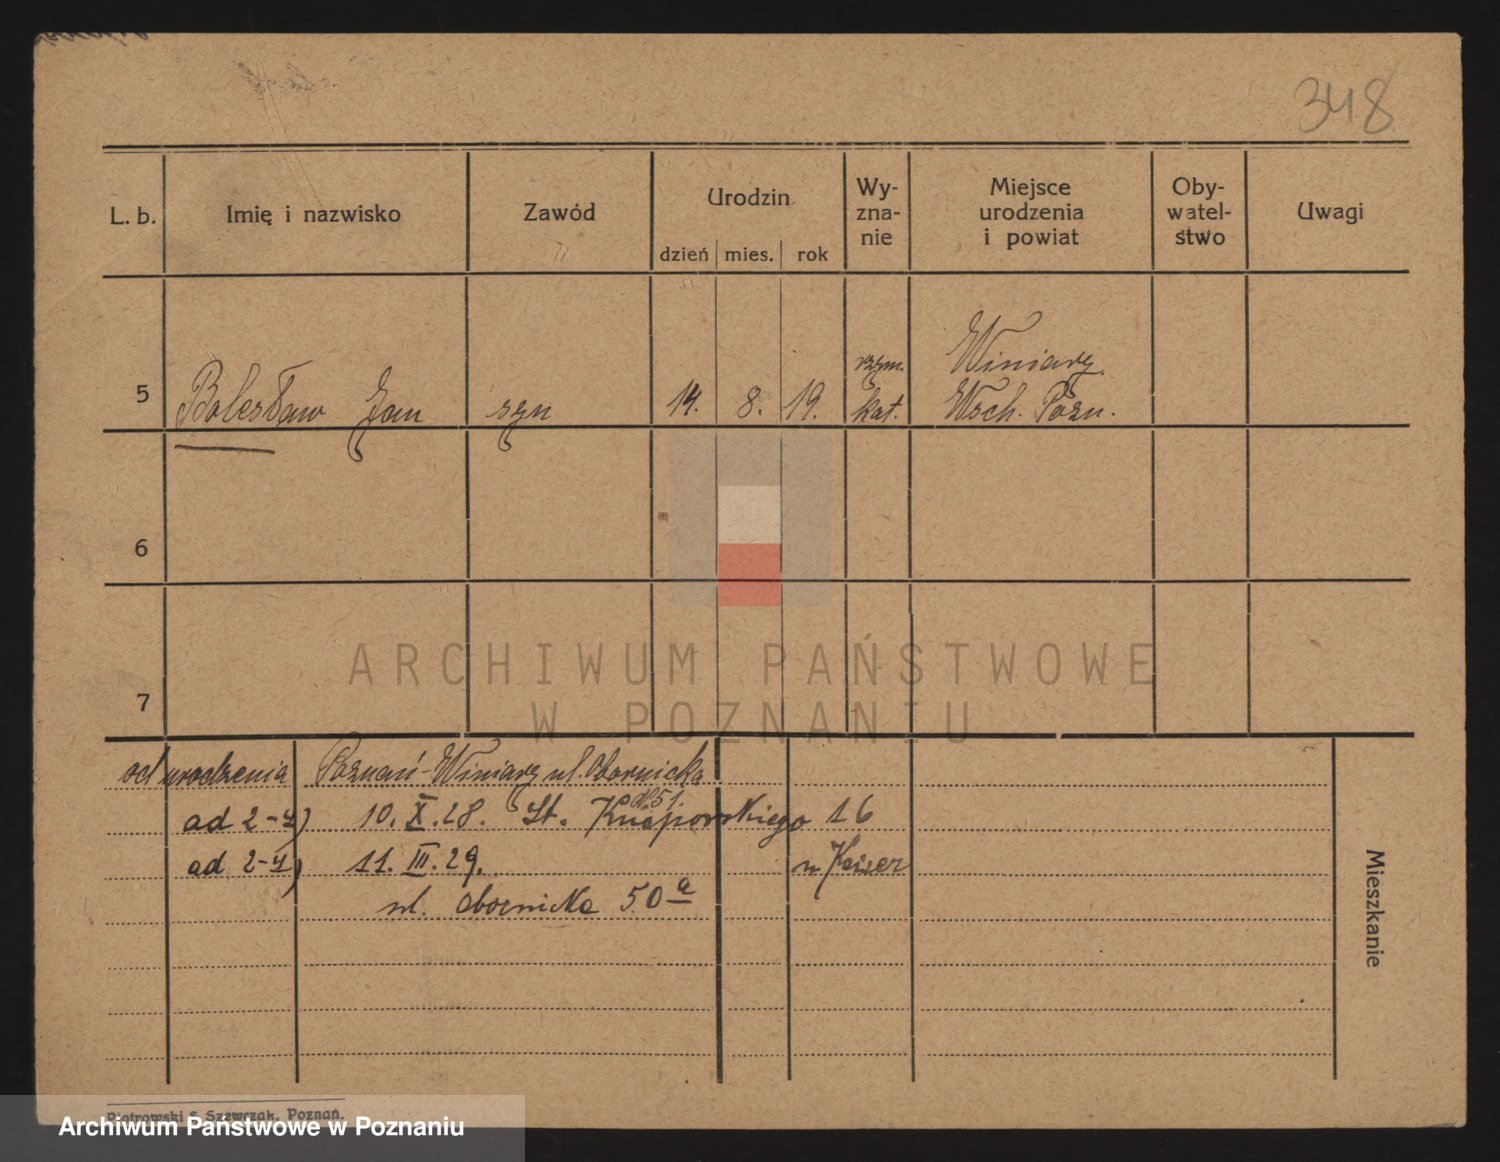 348
L. b.
Imię i nazwisko
Zawód
Urodzin
dzień mies. rok
Wy-
zna-
nie
Miejsce
urodzenia
i powiat
Oby-
watel-
stwo
Uwagi
5 Bolesław Jan syn 14. 8. 19. rzym. kat. Winiary. Wsch. Pozn.
6
7
ARCHIWUM PAŃSTWOWE
W POZNANIU
od urodzenia Poznań-Winiary ul. Obornicka
51.
ad 2-4) 10. X. 28. St. Knaporskiego 16
ad 2-4) 11. III. 29. u Keiser
ul. Obornicka 50 a
Mieszkanie
Piotrowski & Szewczak, Poznań.
Archiwum Państwowe w Poznaniu